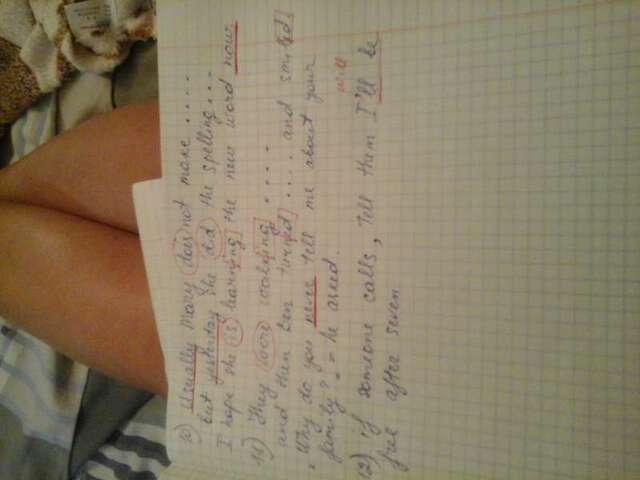 10) Usually Mary does not make ....
but yesterday she did the spelling...
I hope she is learning] the new word now.
11) They were walking] ....
and then Ben turned] .... and smiled]
"Why do you never tell me about your
family?" = he asked.
will
12) if someone calls, tell them I'll be
free after seven